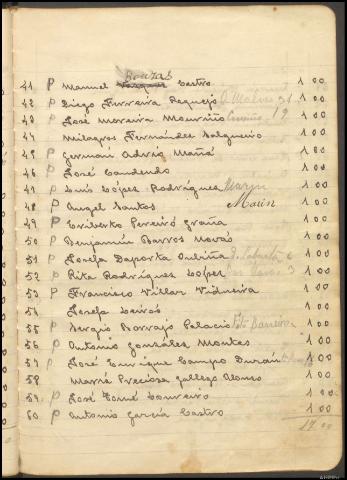 Bouzas
41 P Manuel Castro 1 00
42 P Diego Ferreira Requejo 1 00
43 P José Moreira Mouriño 1 00
44 Milagros Fernández Salgueiro 1 00
45 P Germán Adrio Mañá 1 00
46 P José Caudendo 1 00
47 P Luis López Rodríguez Marin 1 00
48 P Angel Santos Marin 1 00
49 P Eriberto Pereiró graña 1 00
50 P Benjamín Barros Novás 1 00
51 P Josefa Daporta 1 00
52 P Rita Rodríguez López 1 00
53 P Francisco Villar Vidueira 1 00
54 Josefa 1 00
55 P Sergio Borrajo Palacio 1 00
56 P Antonio gonzáles Montes 1 00
57 P José Enrique Campo Durán 1 00
58 María Preciosa gallego Alonso 1 00
59 P José Tomé Loureiro 1 00
60 P Antonio garcía Castro 1 00